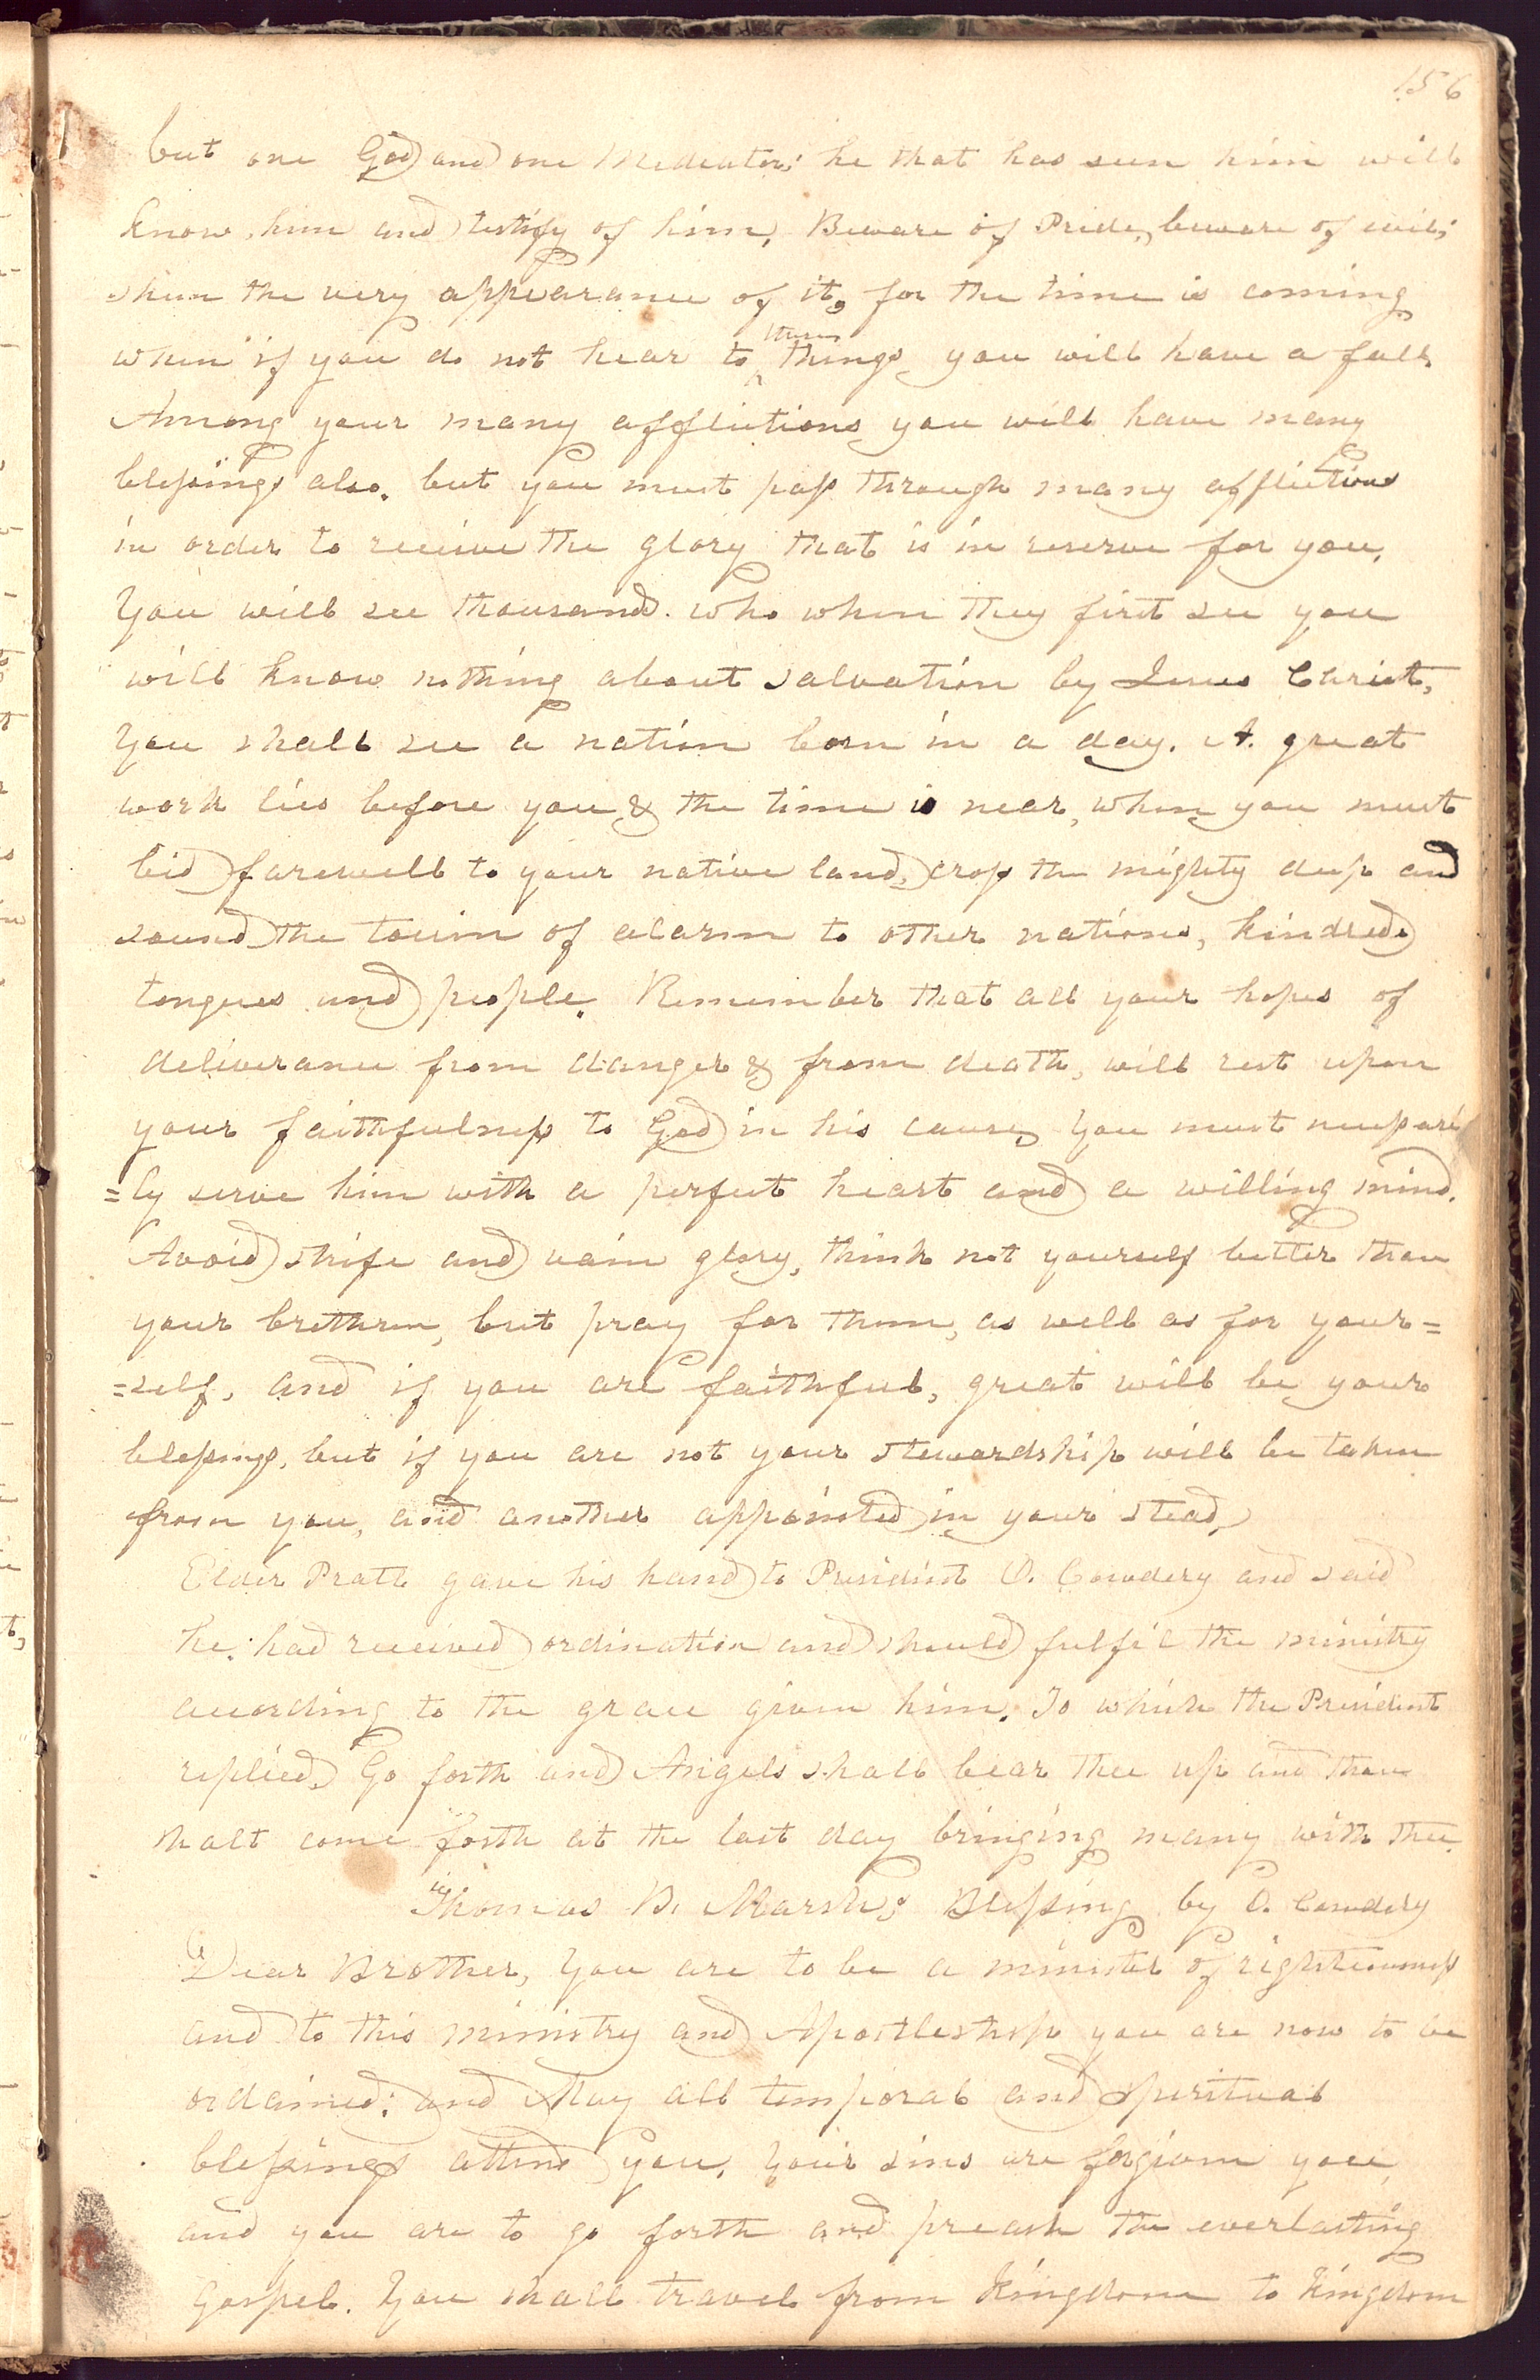 156
but one God and one Mediator; he that has seen him will
know him and testify of him, Beware of Pride, beware of evil;
shun the very appearance of it, for the time is coming
when if you do not hear to these things you will have a fall.
Among your many afflictions you will have many
blessings also. but you must pass through many afflictions
in order to receive the glory that is in reserve for you.
You will see thousands. who when they first see you
will know nothing about salvation by Jesus Christ,
You shall see a nation born in a day. A. great
work lies before you & the time is near, when you must
bid farewell to your native land, cross the mighty deep and
sound the tocsin of alarm to other nations, kindreds
tongues and people. Remember that all your hopes of
deliverance from danger & from death, will rest upon
your faithfulness to God in his cause, You must necessari
=ly serve him with a perfect heart and a willing mind.
Avoid strife and vain glory, think not yourself better than
your brethren, but pray for them, as well as for your=
=self, and if you are faithful, great will be your
blessings, but if you are not your stewardship will be taken
from you, and another appointed in your stead,
Elder Pratt gave his hand to President O. Cowdery and said
he. had received ordination and should fulfil the ministry
according to the grace given him. To which the President
replied, Go forth and Angels shall bear thee up and thou
shalt come forth at the last day bringing many with thee.
Thomas B. Marsh,s Blessing by O. Cowdery
Dear Brother, You are to be a minister of righteousness
and to this ministry and Apostleship you are now to be
ordained: and May all temporal and spiritual
blessings attend you. Your sins are forgiven you,
and you are to go forth and preach the everlasting
Gospel. You shall travel from Kingdom to Kingdom